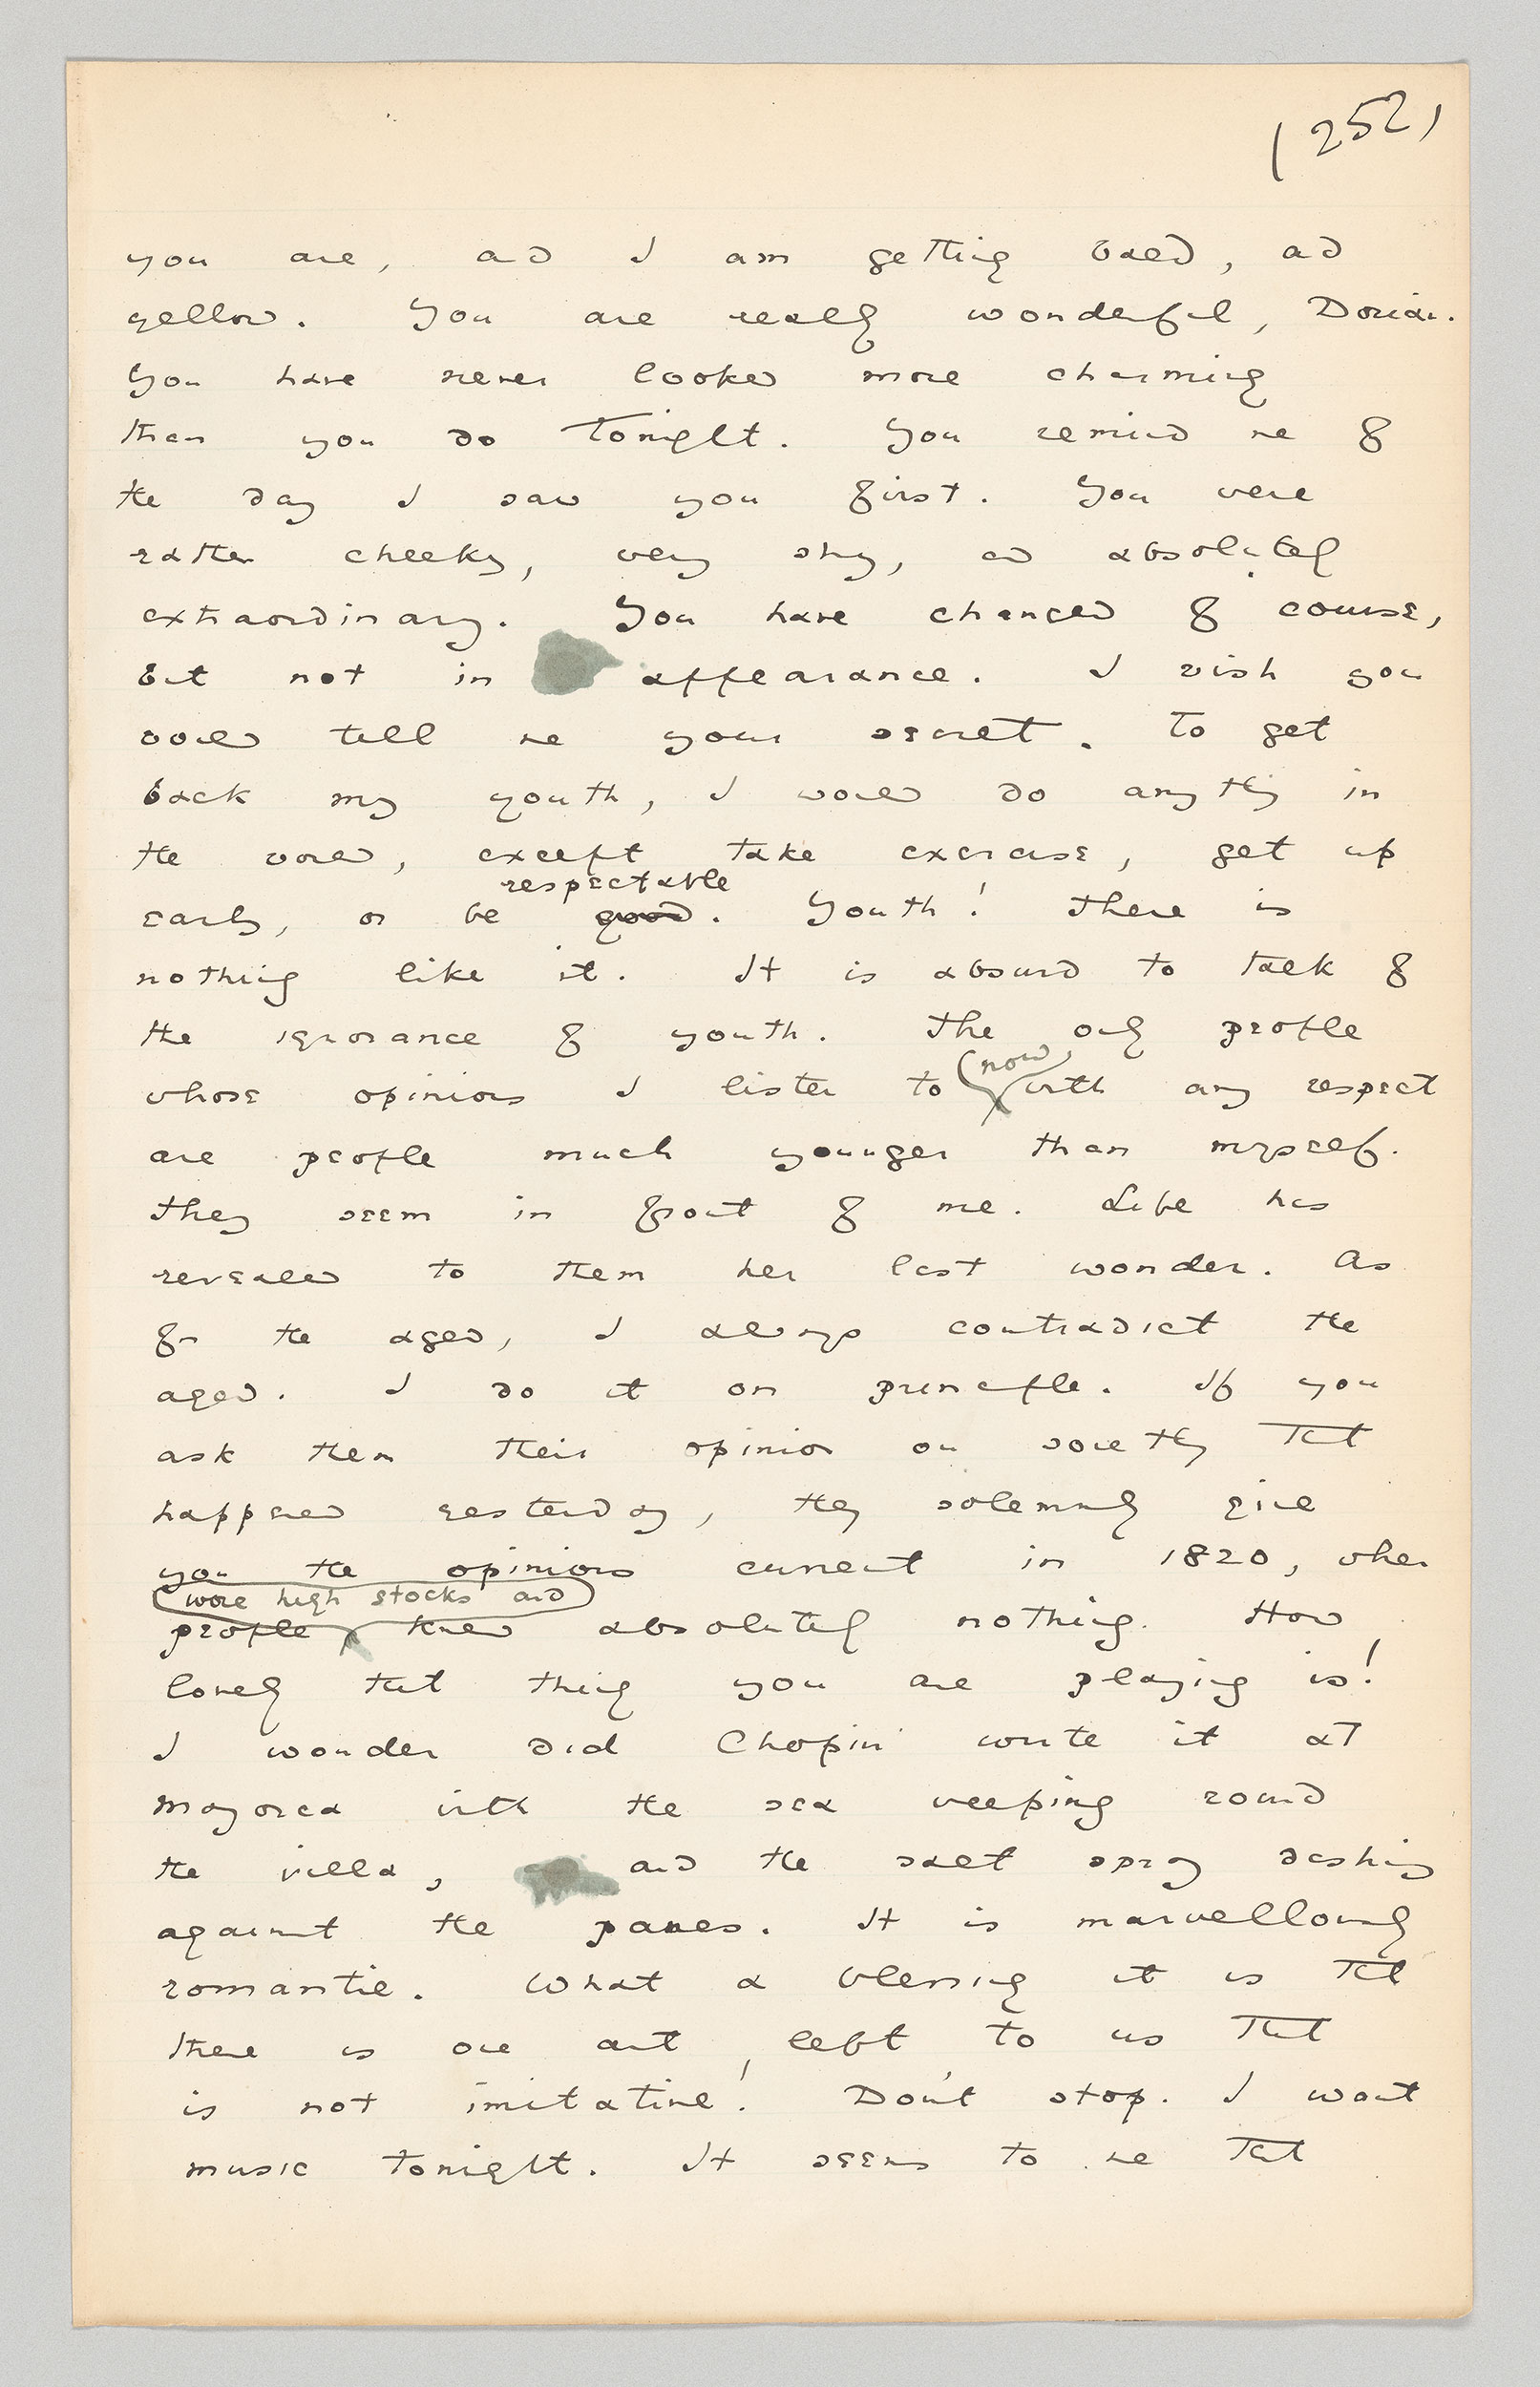 (252)
you are, and I am getting bald, and
yellow. You are really wonderful, Dorian.
You have never looked more charming
than you do tonight. You remind me of
the day I saw you first. You were
rather cheeky, very shy, and absolutely
extraordinary. You have changed of course,
but not in appearance. I wish you
would tell me your secret. To get
back my youth, I would do anything in
the world, except take exercise, get up
respectable
early, or be good. Youth! There is
nothing like it. It is absurd to talk of
the ignorance of youth. The only people
now
whose opinions I listen to with any respect
are people much younger than myself.
They seem in front of me. Life has
revealed to them her last wonder. As
for the aged, I always contradict the
aged. I do it on principle. If you
ask them their opinion on something that
happened yesterday, they solemnly give
you the opinions current in 1820, when
wore high stocks and
people knew absolutely nothing. How
lovely that thing you are playing is!
I wonder did Chopin write it at
Mayorca with the sea weeping round
the villa, and the salt spray dashing
against the panes. It is marvellously
romantic. What a blessing it is that
there is one art left to us that
is not imitative! Don't stop. I want
music tonight. It seems to me that